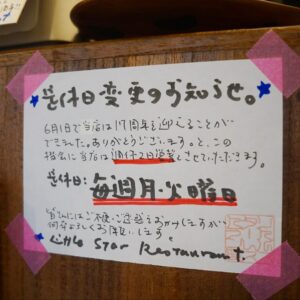 定休日変更のお知らせ。
6月1日で当店は17周年を迎えることが
できました。ありがとうございます。と、この
機会に当店は週休2日営業とさせていただきます。
定休日:毎週月・火曜日
皆さんにはご不便・ご迷惑をおかけしますが
何卒よろしくお願いします。
Little Star Restaurant.